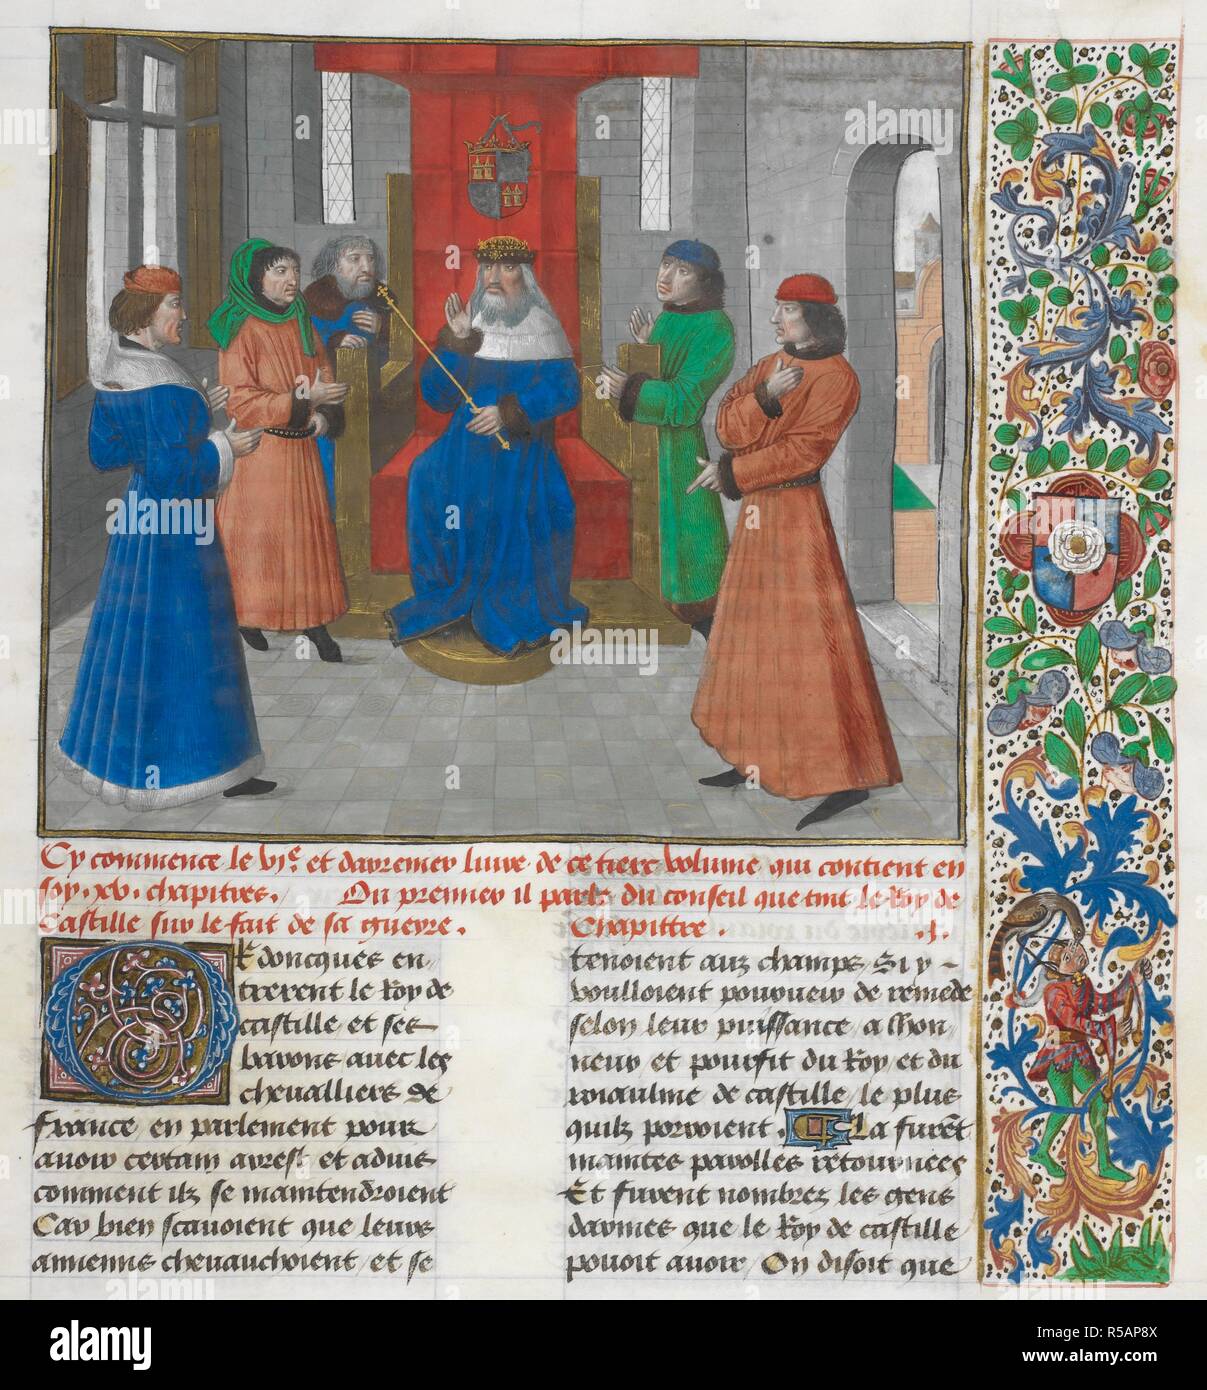 Cy commence le vj.e et darremier liure de ce tiers volume qui contient en
soy .xv. chapitres. Ou premier il parle du conseil que tint le Roy de
Castille sur le fait de sa guerre. Chapittre .j.
Or doncques en
trerent le Roy de
castille et ses
barons auec les
cheualliers de
france en parlement pour
auoir certain arrest et aduis
comment ilz se maintendroient
Car bien scauoient que leurs
annemis cheuauchoient et se
tenoient aux champs Si y
voulloient pourueir de remede
selon leur puissance a lhon
neur et pourfit du Roy et du
roiaulme de castille le plus
quilz porroient. La furent
maintes parolles retournees
Et furent nombrez les gens
darmes que le Roy de castille
pouoit auoir On disoit que
alamy
Image ID: R5AP8X
www.alamy.com